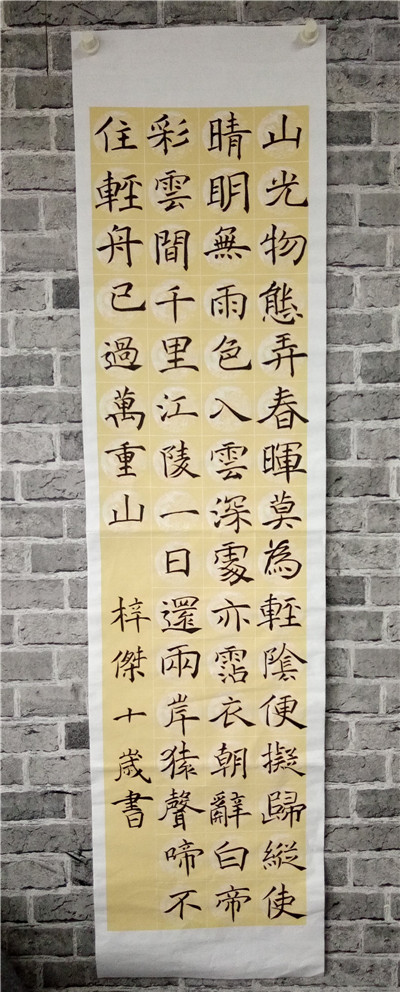 山光物態弄春暉莫為輕陰便擬歸縱使
晴明無雨色入雲深處亦霑衣朝辭白帝
彩雲間千里江陵一日還兩岸猿聲啼不
住輕舟已過萬重山
梓傑十歲書